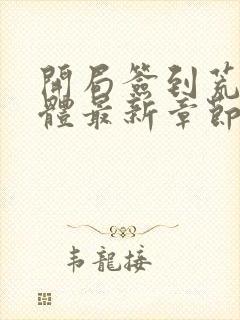 開局簽到荒
體最新章節
韦龍接